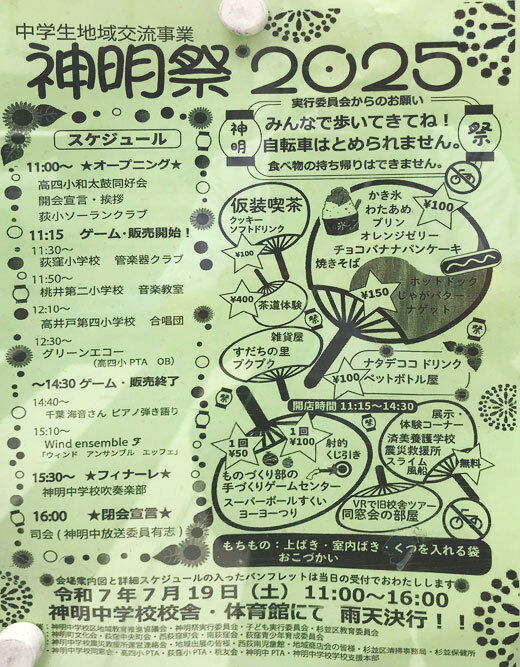 中学生地域交流事業
神明祭 2025
スケジュール
11:00～ ★オープニング★
高四小和太鼓同好会
開会宣言・挨拶
荻小ソーランクラブ
11:15 ゲーム・販売開始！
11:30～
荻窪小学校 管楽器クラブ
11:50～
桃井第二小学校 音楽教室
12:10～
高井戸第四小学校 合唱団
12:30～
グリーンエコー
(高四小PTA OB)
～14:30 ゲーム・販売終了
14:40～
千葉 海音さん ピアノ弾き語り
15:10～
Wind ensemble F
「ウィンド アンサンブル エッフェ」
15:30～ ★フィナーレ★
神明中学校吹奏楽部
16:00 ★閉会宣言★
司会(神明中放送委員有志)
実行委員会からのお願い
神明
みんなで歩いてきてね！
自転車はとめられません。
食べ物の持ち帰りはできません。
祭
仮装喫茶
クッキー
ソフトドリンク
¥100
かき氷
わたあめ
プリン
オレンジゼリー
チョコバナナパンケーキ
焼きそば
¥100
ホットドック
じゃがバター
ナゲット
¥150
¥400
茶道体験
雑貨屋
すだちの里
プクプク
ナタデココ ドリンク
ペットボトル屋
¥100
開店時間 11:15～14:30
1回
¥50
1回
¥100
射的
くじ引き
ものづくり部の
手づくりゲームセンター
スーパーボールすくい
ヨーヨーつり
展示・
体験コーナー
済美養護学校
震災救援所
スライム
風船
無料
VRで旧校舎ツアー
同窓会の部屋
もちもの：上ばき・室内ばき・くつを入れる袋
おこづかい
会場案内図と詳細スケジュールの入ったパンフレットは当日の受付でおわたしします
令和7年7月19日(土) 11:00～16:00
神明中学校校舎・体育館にて 雨天決行！！
神明中学校区地域教育推進協議会・神明祭実行委員会・子ども実行委員会・杉並区教育委員会